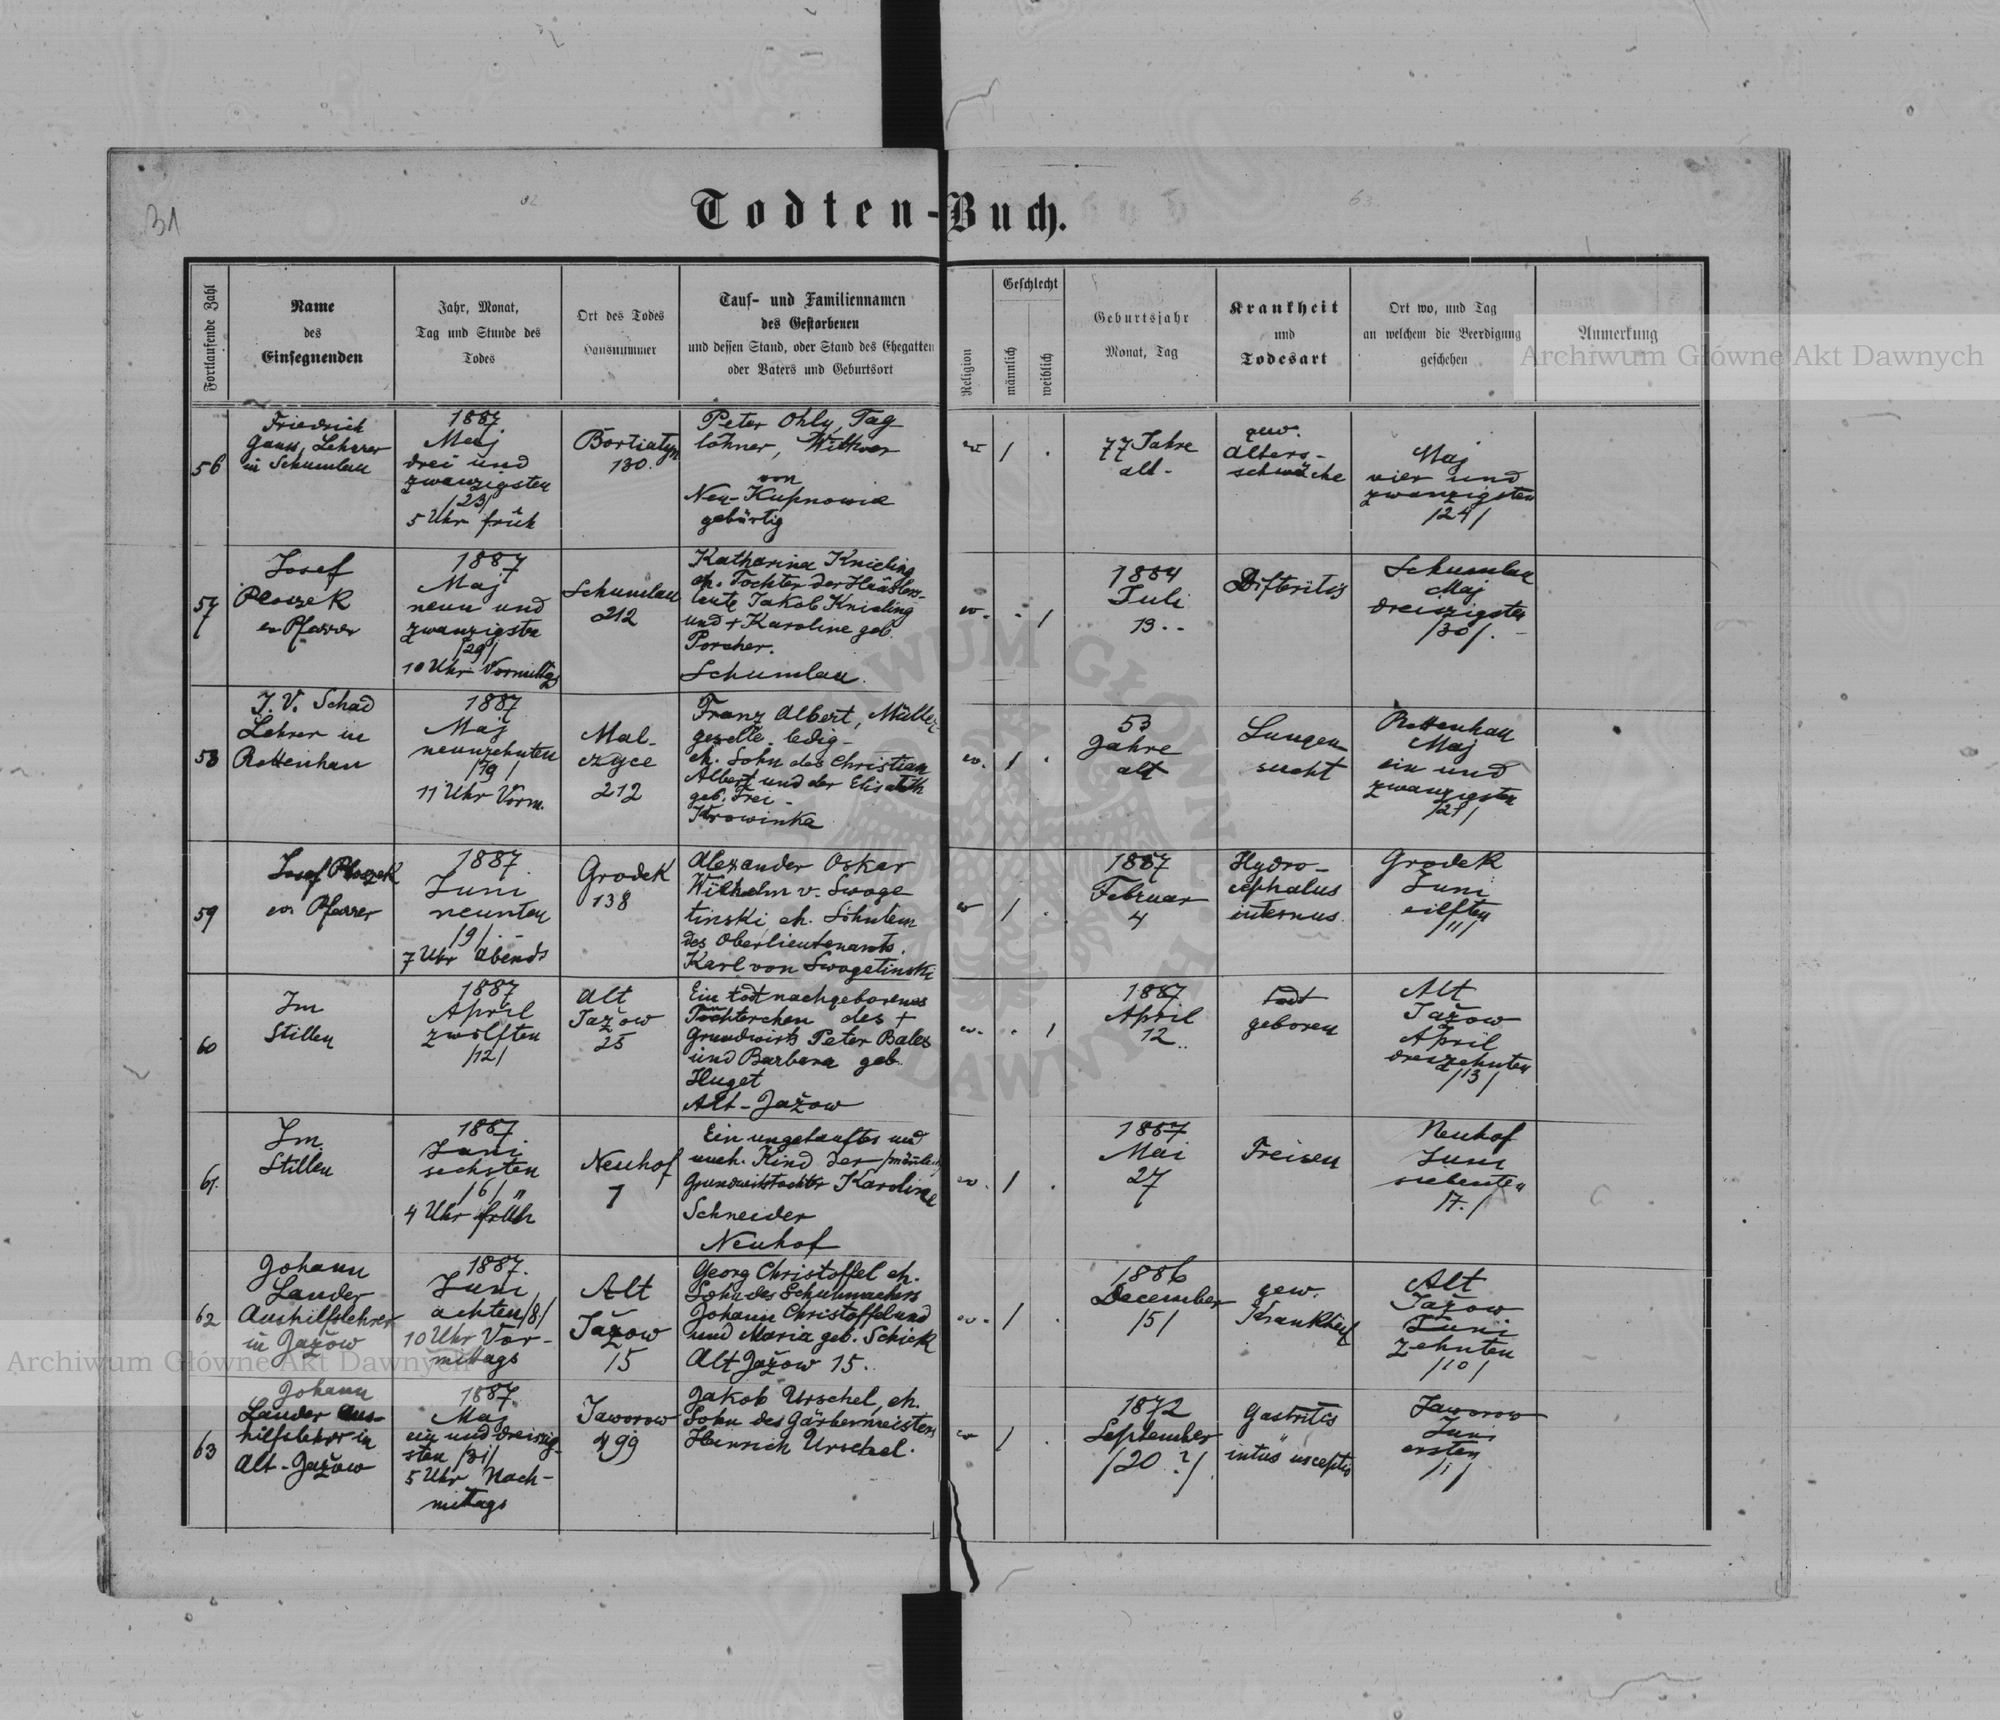 31
62
63.
Todten-Buch.
Fortlaufende Zahl
Name
des
Einsegnenden
Jahr, Monat,
Tag und Stunde des
Todes
Ort des Todes
Hausnummer
Tauf- und Familiennamen
des Gestorbenen
und dessen Stand, oder Stand des Ehegatten
oder Vaters und Geburtsort
Religion
Geschlecht
männlich
weiblich
Geburtsjahr
Monat, Tag
Krankheit
und
Todesart
Ort wo, und Tag
an welchem die Beerdigung
geschehen
Anmerkung
56
Friedrich
Gauss, Lehrer
in Schumlau
1887.
Maj
drei und
zwanzigsten
/23/
5 Uhr früh
Bortiatyn
130.
Peter Ohly, Tag
löhner, Wittwer
von
Neu-Kupnowice
gebürtig
ev
/
.
77 Jahre
alt -
gew.
Alters-
schwäche
Maj
vier und
zwanzigsten
/24/
57
Josef
Ploszek
ev Pfarrer
1887
Maj
neun und
zwanzigsten
/29/
10 Uhr Vormittgs
Schumlau
212
Katharina Knieling
eh. Tochter der Häüsler-
leute Jakob Knieling
und + Karoline geb.
Porcher.
Schumlau.
ev.
.
/
1884
Juli
13..
Difteritis
Schumlau
Maj
dreizigsten
/30/. -
58
J. V. Schad
Lehrer in
Rottenhan
1887
Maj
neunzehnten
/19/
11 Uhr Vorm.
Mal-
czyce
212
Franz Albert, Müller-
geselle, ledig -
eh. Sohn des Christian
Albert und der Elisabeth
geb. Frei -
Krowinka
ev.
/
.
53
Jahre
alt
Lungen-
sucht
Rottenhan
Maj
ein und
zwanzigsten
/21/
59
Josef Ploszek
ev. Pfarrer
1887.
Juni
neunten
/9/ -
7 Uhr Abends
Grodek
138
Alexander Oskar
Wilhelm v. Swoge
tinski, eh. Söhnlein
des Oberlieutenants
Karl von Swogetinski
ev
/
.
1887
Februar
4
Hydro-
cephalus
internus.
Grodek
Juni
eilften
/11/
60
Im
Stillen
1887
April
zwölften
/12/
Alt
Jažow
25
Ein todt nachgeborenes
Töchterchen des +
Grundwirts Peter Bales
und Barbara geb.
Huget
Alt-Jažow
ev.
.
/
1887
April
12..
todt
geboren
Alt
Jažow
April
dreizehnten
/13/
61.
Im
Stillen
1887
Juni
sechsten
/6/
4 Uhr früh
Neuhof
7
Ein ungetauftes und
uneh. Kind der /männlich/
Grundwirtstochter Karoline
Schneider
Neuhof
ev.
/
.
1887
Mai
27
Freisen
Neuhof
Juni
siebenten
/7./
62
Johann
Lander
Aushilfslehrer
in Jažow
1887.
Juni
achten /8/
10 Uhr Vor-
mittags
Alt
Jažow
15
Georg Christoffel eh.
Sohn des Schuhmachers
Johann Christoffel und
und Maria geb. Schick
Alt Jažow 15.
ev.
/
.
1886
December
/5/
gew.
Krankheit
Alt
Jažow
Juni
zehnten
/10/
63
Johann
Lander Aus-
hilfslehrer in
Alt-Jažow
1887.
Maj
ein und dreissig-
sten /31/
5 Uhr Nach-
mittags
Jaworow
499
Jakob Urschel, eh.
Sohn des Gärbermeisters
Heinrich Urschel.
ev
/
.
1872
September
/20 ?/
Gastritis
intus usceptio
Jaworow
Juni
ersten
/1/
Archiwum Główne Akt Dawnych
Archiwum Główne Akt Dawnych